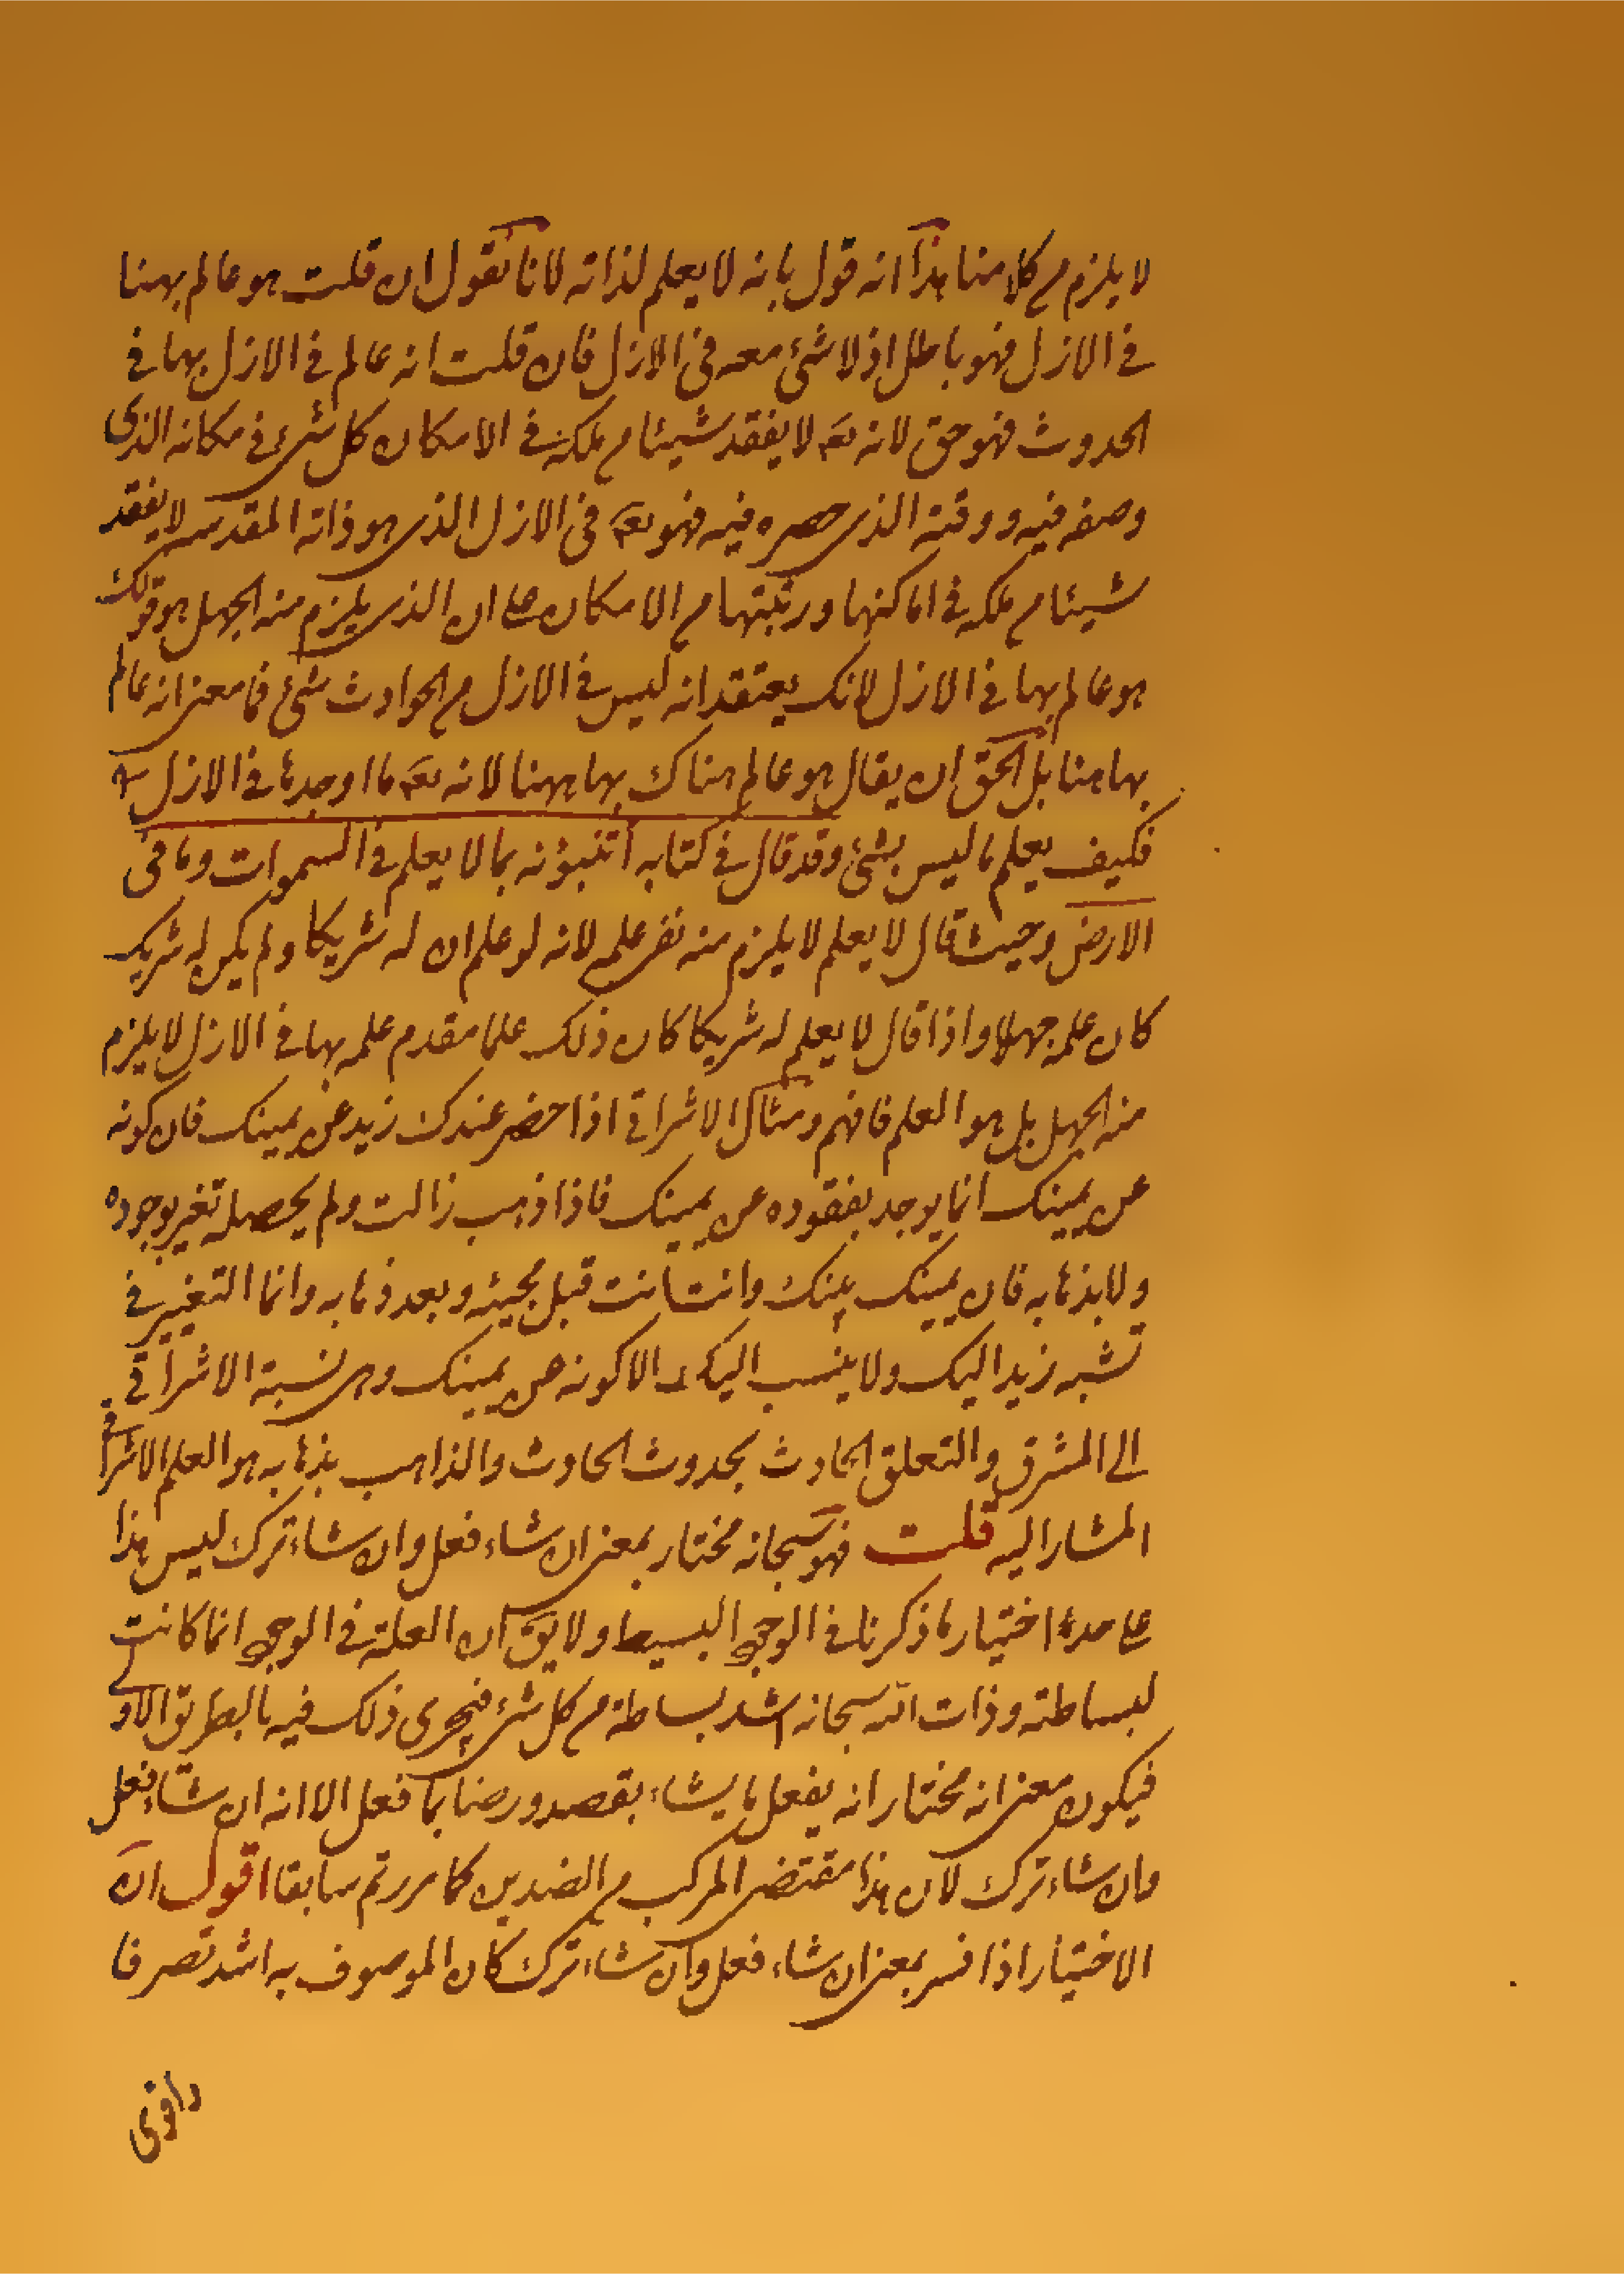 لا يلزم من كلامنا هذا انه قول بانه لا يعلم لذاته لانا نقول ان قلت هو عالم بهنا
في الازل فهو باطل اذ لا شئ معه في الازل فان قلت انه عالم في الازل بها في
الحدوث فهو حق لانه تعه لا يفقد شيئا من ملكه في الامكان كل شئ في مكانه الذي
وصفه فيه ووقته الذي حصره فيه فهو تعه في الازل الذي هو ذاته المقدسه لا يفقد
شيئا من ملكه في اماكنها ورتبتها من الامكان على ان الذي يلزم منه الجهل هو قولك
هو عالم بها في الازل لانك يعتقد انه ليس في الازل من الحوادث شئ فما معنى انه عالم
بها هنا بل الحق ان يقال هو عالم هناك بها ههنا لانه تعه ما اوجدها في الازل
فكيف يعلم ما ليس بشئ وقد قال في كتابه أتنبؤنه بما لا يعلم في السموات وما في
الارض وحيث قال لا يعلم لا يلزم منه نفى علمه لانه لو علم ان له شريكا ولم يكن له شريك
كان علمه جهلا واذا قال لا يعلم له شريكا كان ذلك علما مقدم علمه بها في الازل لا يلزم
منه الجهل بل هو العلم فافهم ومثال الاشراقي اذا حضر عندك زيد عن يمينك فان كونه
عن يمينك انما يوجد بفقوده عن يمينك فاذا ذهب زالت ولم يحصل تغير بوجوده
ولا بذهابه فان يمينك يمنك وانت انت قبل مجيئه وبعد ذهابه وانما التغيير في
نشبه زيد اليك ولا ينسب اليك الا كونه عن يمينك وهى نسبة الاشراقي
الى المشرق والتعلق الحادث بحدوث الحادث والذاهب بذهابه هو العلم الاشراقي
المشار اليه قلت فهو سبحانه مختار بمعنى ان شاء فعل وان شاء ترك ليس هذا
على حد اختيار ما ذكرنا في الوجه البسيط ولا يق ان العلة في الوجه انما كانت
لبساطته وذات الله سبحانه اشد بساطة من كل شئ فيجرى ذلك فيه بالطريق الاولى
فيكون معنى انه مختار انه يفعل ما يشاء بقصد ورضا بما فعل الا انه ان شاء فعل
وان شاء ترك لان هذا مقتضى المركب من الضدين كما مررتم سابقا اقول ان
الاختيار اذا فسر بمعنى ان شاء فعل وان شاء ترك كان الموصوف به اشد تصرفا
واقوى